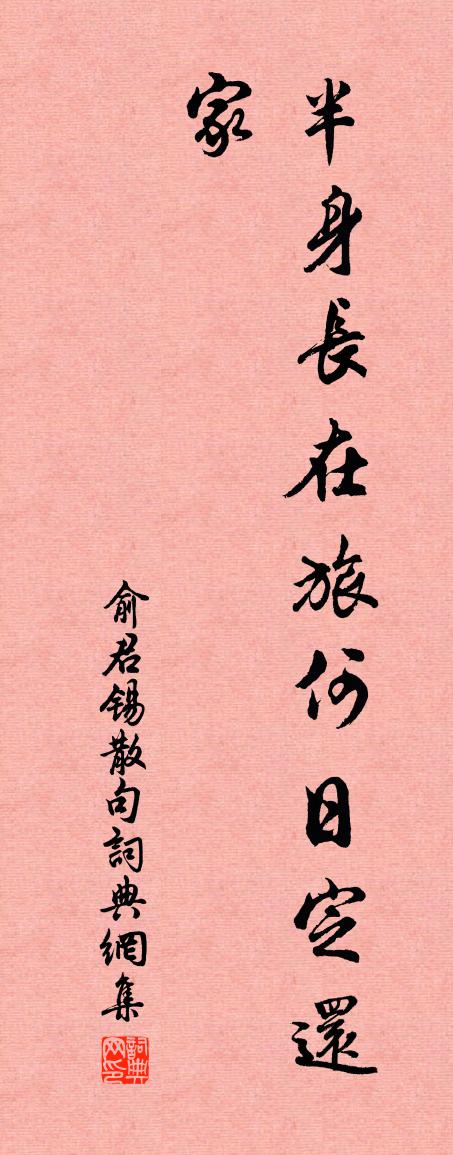 半身長在旅何日定還
家
俞君錫散句詞典網集
詞典
网印